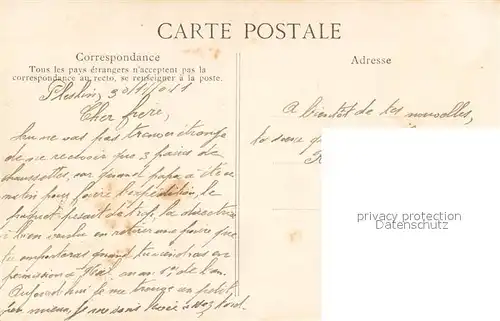 CARTE POSTALE
Correspondance
Tous les pays étrangers n'acceptent pas la
correspondance au recto, se renseigner à la poste.
Adresse
Cher frère,
tu ne vas pas trouver étrange
de ne recevoir que 3 paires de
chaussettes, car quand papa a été ce
matin pour faire l'expédition, le
paquet pesait de trop, la directrice
a bien voulu en retirer une paire que
tu emporteras quand tu viendras en
permission à Noël ou au 1er de l'an.
Aujourd'hui je me trouve un petit
peu mieux, je me suis levée
A bientôt de tes nouvelles,
ta sœur
privacy protection